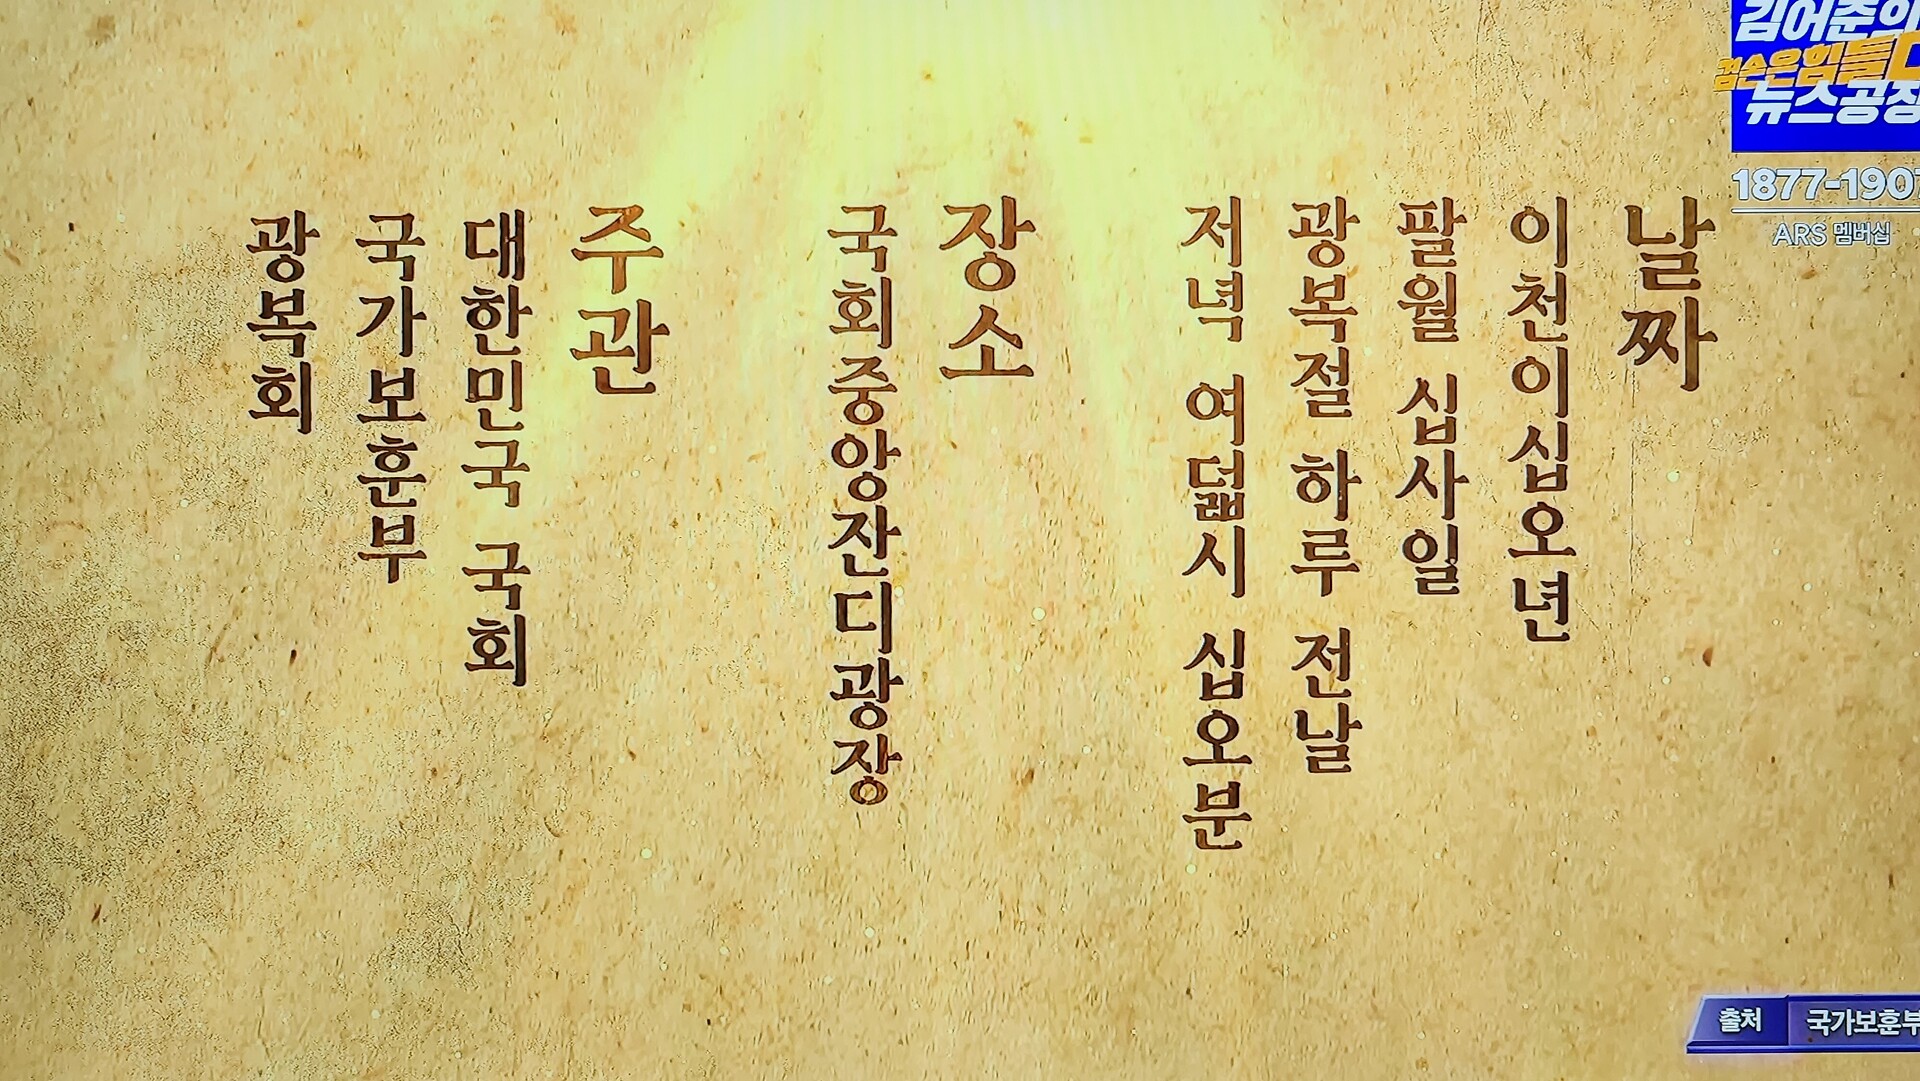 날짜
이천이십오년
팔월 십사일
광복절 하루 전날
저녁 여덟시 십오분
장소
국회중앙잔디광장
주관
대한민국 국회
국가보훈부
광복회
김어준의
겸손은힘들다
뉴스공장
1877-1907
ARS 멤버십
출처
국가보훈부